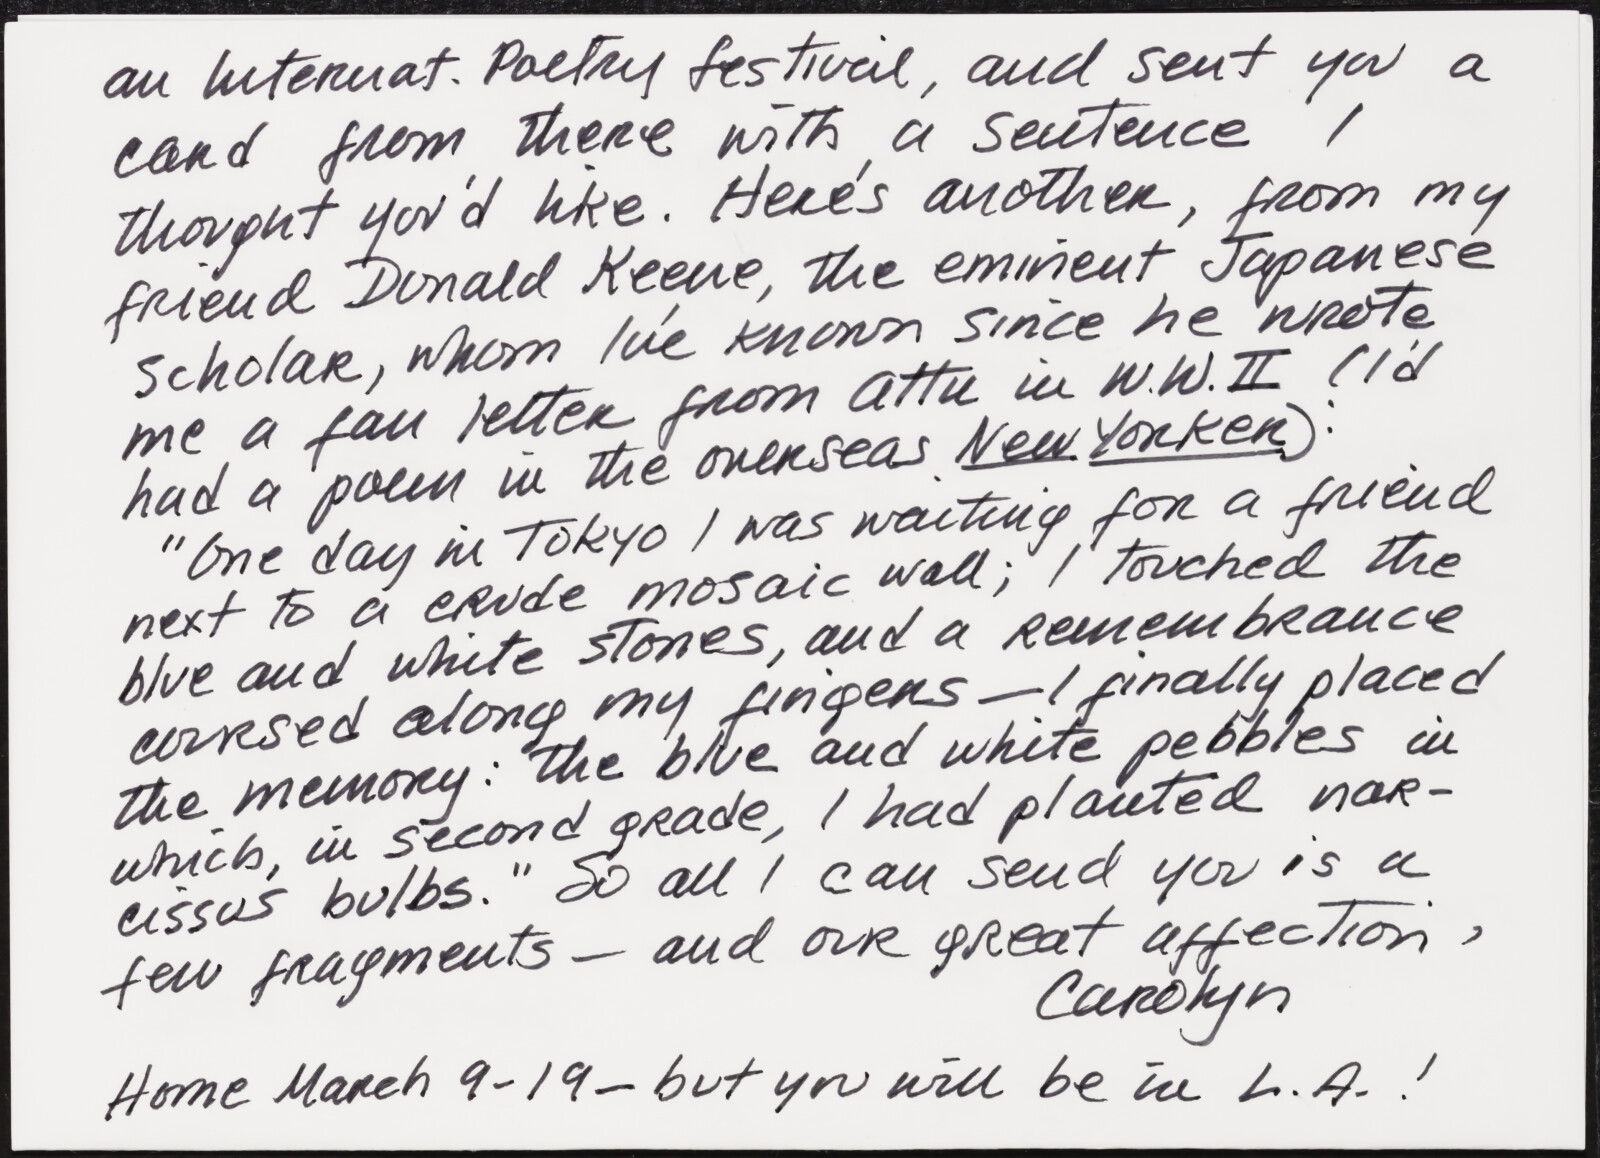 an Internat. Poetry festival, and sent you a
card from there with a sentence I
thought you'd like. Here's another, from my
friend Donald Keene, the eminent Japanese
scholar, whom I've known since he wrote
me a fan letter from Attu in W.W.II (I'd
had a poem in the overseas New Yorker):
"One day in Tokyo I was waiting for a friend
next to a crude mosaic wall; I touched the
blue and white stones, and a remembrance
coursed along my fingers — I finally placed
the memory: the blue and white pebbles in
which, in second grade, I had planted nar-
cissus bulbs." So all I can send you is a
few fragments — and our great affection,
Carolyn
Home March 9-19 — but you will be in L.A.!